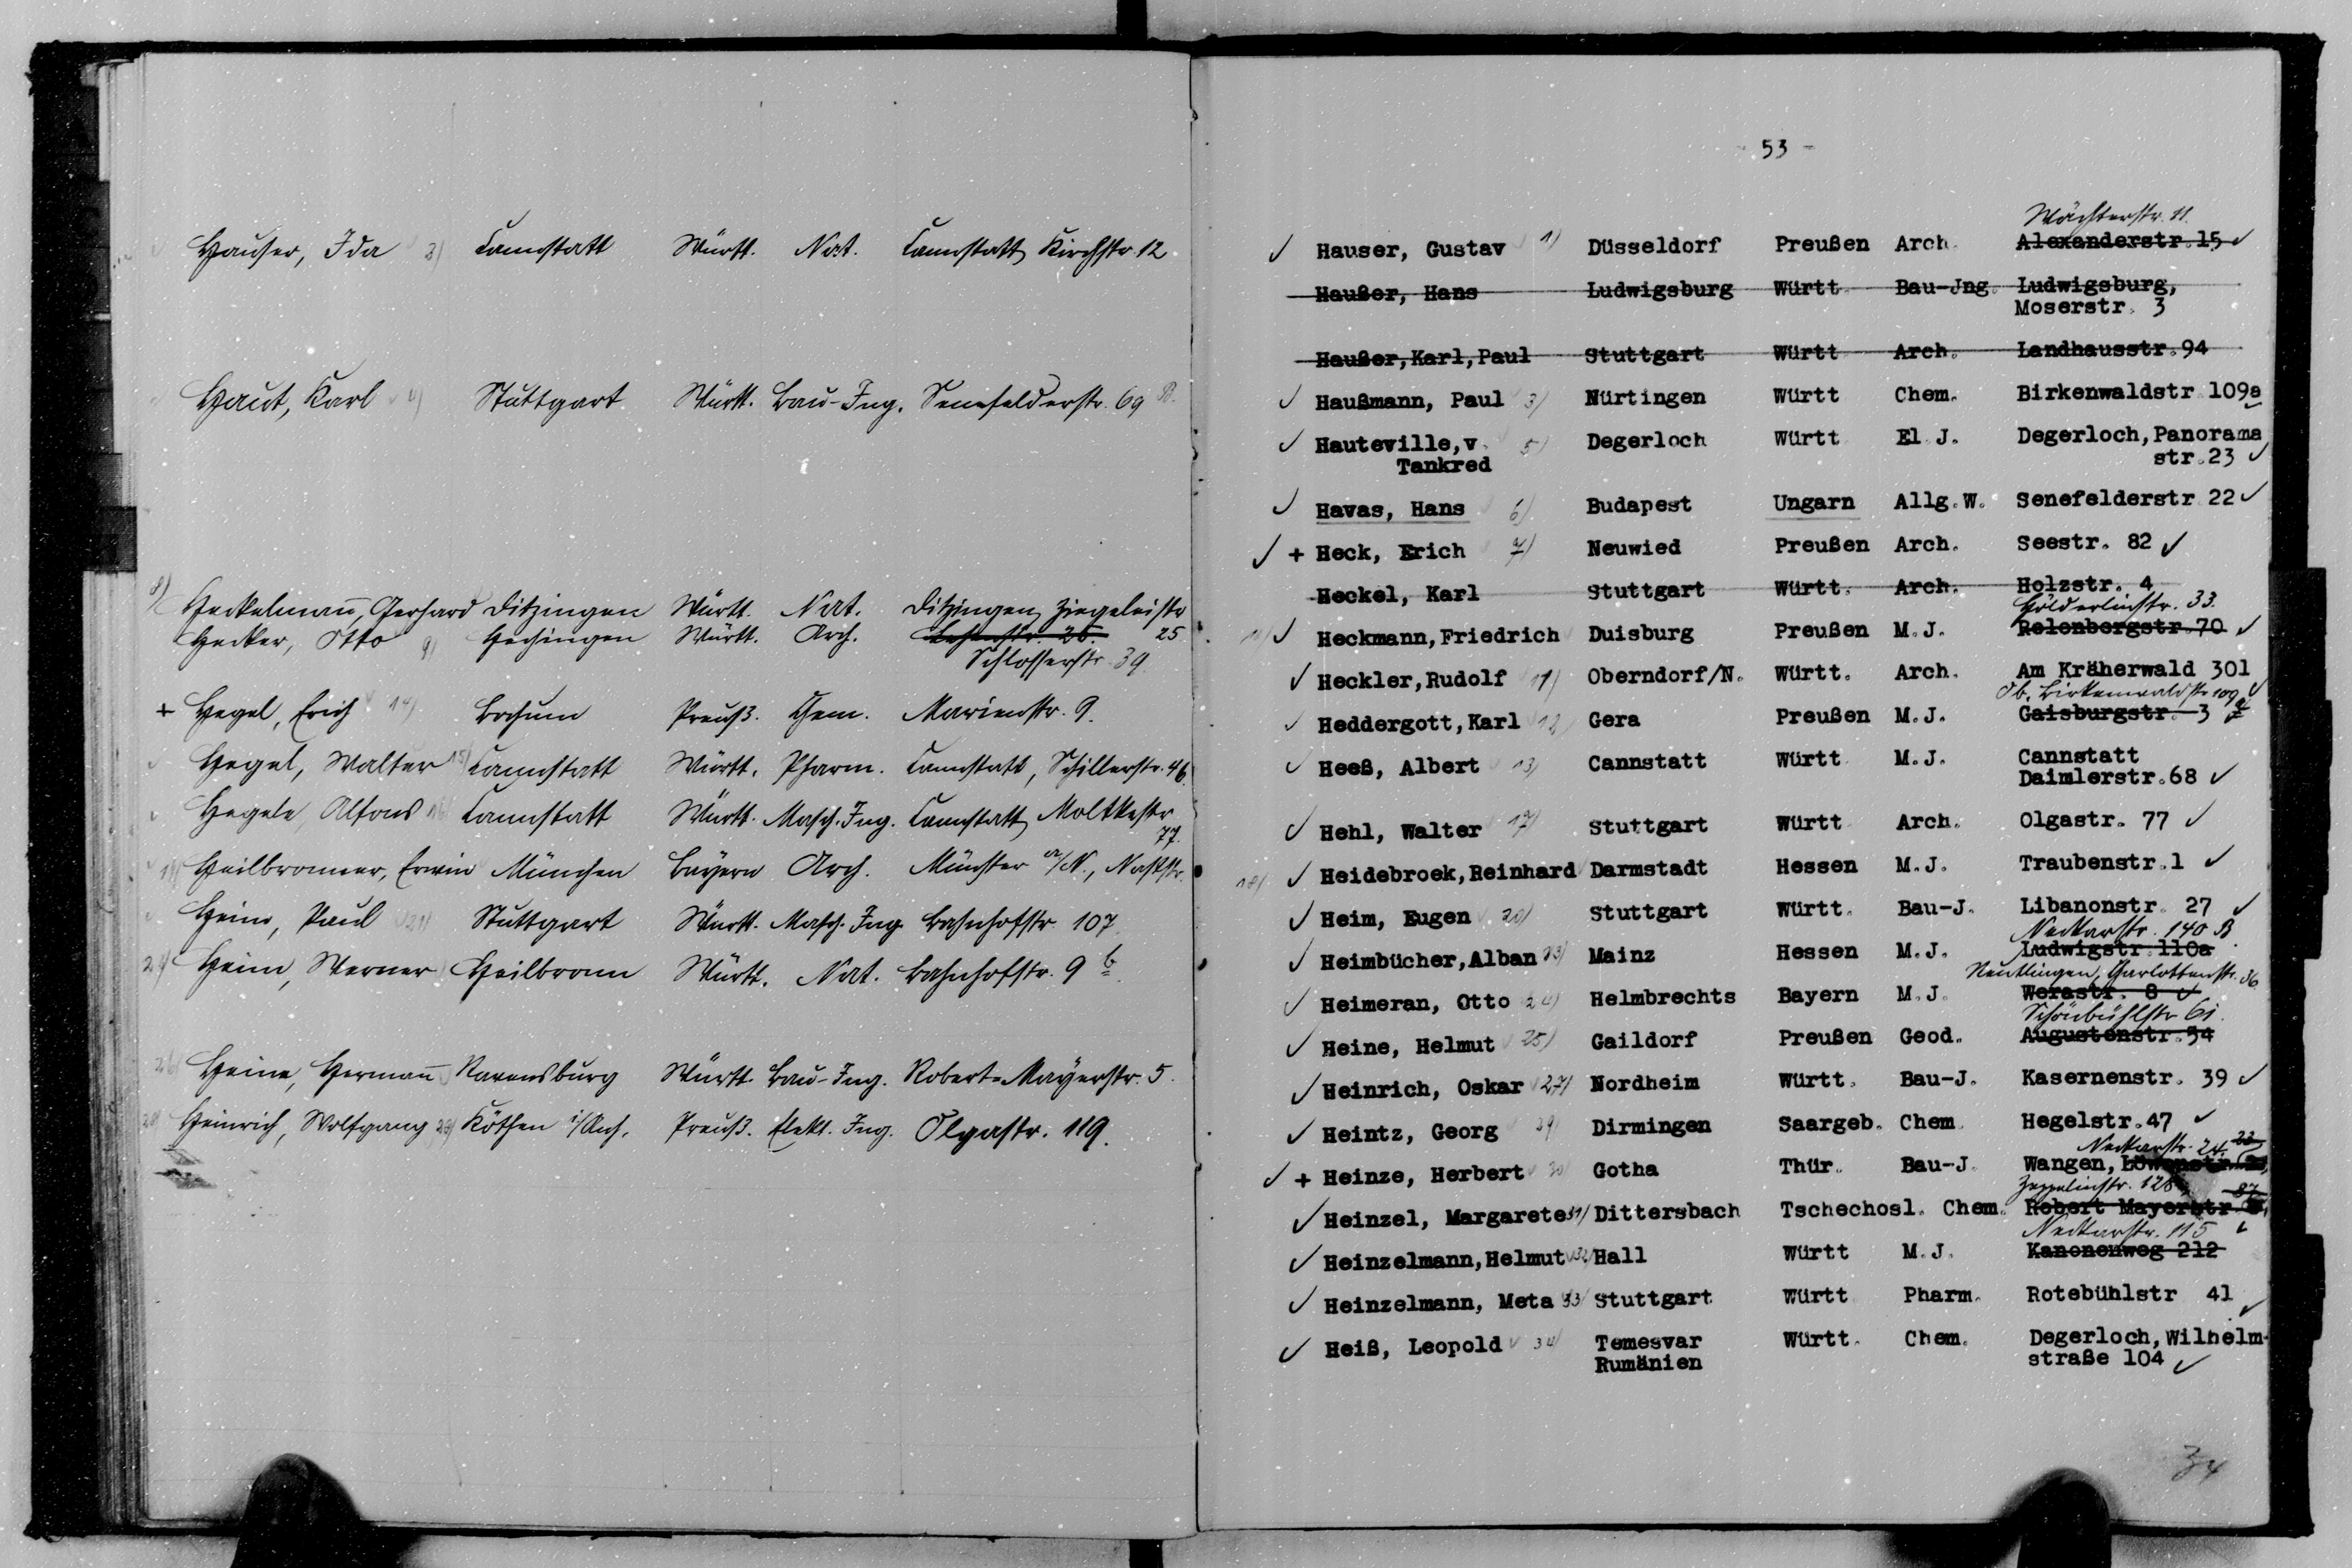 Hauser, Ida 2) Cannstatt Württ. Nat. Cannstatt, Kirchstr. 12
Haut, Karl 4) Stuttgart Württ. Bau-Ing. Senefelderstr. 69 B.
8) Heckelmann, Gerhard Ditzingen Württ. Nat. Ditzingen, Ziegeleistr.
Hecker, Otto 9) Hechingen Württ. Arch. 25
Schlosserstr. 39
+ Hegel, Erich 14) Bochum Preuß. Chem. Marienstr. 9.
Hegel, Walter 15) Cannstatt Württ. Pharm. Cannstatt, Schillerstr. 46
Hegele, Alfons 16) Cannstatt Württ. Masch. Ing. Cannstatt, Moltkestr.
77.
19) Heilbronner, Erwin München Bayern Arch. Münster a/N.,
Heim, Paul 21) Stuttgart Württ. Masch. Ing. Bahnhofstr. 107
Heim, Werner Heilbronn Württ. Nat. Bahnhofstr. 9 b
26) Heine, Hermann Ravensburg Württ. Bau-Ing. Robert-Mayerstr. 5.
28) Heinrich, Wolfgang Köthen i/Anh. Preuß. Elekt. Ing. Olgastr. 119.
53 -
Wächterstr. 11.
✓ Hauser, Gustav 1) Düsseldorf Preußen Arch. Alexanderstr. 15 ✓
Haußer, Hans Ludwigsburg Württ. Bau-Jng. Ludwigsburg,
Moserstr. 3
Haußer,Karl,Paul Stuttgart Württ Arch. Landhausstr. 94
✓ Haußmann, Paul 3) Nürtingen Württ Chem. Birkenwaldstr 109a
✓ Hauteville,v. 5) Degerloch Württ El J. Degerloch,Panorama
Tankred str.23 ✓
✓ Havas, Hans 6) Budapest Ungarn Allg.W. Senefelderstr 22 ✓
✓ + Heck, Erich 7) Neuwied Preußen Arch. Seestr. 82 ✓
Heckel, Karl Stuttgart Württ. Arch. Holzstr. 4
Hölderlinstr. 33.
10) ✓ Heckmann,Friedrich Duisburg Preußen M.J. Relenbergstr.70 ✓
✓ Heckler,Rudolf 11) Oberndorf/N. Württ. Arch. Am Kräherwald 301
Ob. Birkenwaldstr. 109
✓ Heddergott,Karl 12) Gera Preußen M.J. Gaisburgstr. 3
✓ Heeß, Albert 13) Cannstatt Württ M.J. Cannstatt
Daimlerstr.68 ✓
✓ Hehl, Walter 17) Stuttgart Württ Arch. Olgastr. 77 ✓
18) ✓ Heidebroek,Reinhard Darmstadt Hessen M.J. Traubenstr.1 ✓
✓ Heim, Eugen 20) Stuttgart Württ. Bau-J. Libanonstr. 27 ✓
Neckarstr. 140 B
✓ Heimbücher,Alban 23) Mainz Hessen M.J. Ludwigstr 110a
Reutlingen, Charlottenstr. 36
✓ Heimeran, Otto 24) Helmbrechts Bayern M.J. Werastr. 8 ✓
Schönbühlstr. 61.
✓ Heine, Helmut 25) Gaildorf Preußen Geod. Augustenstr.54
✓ Heinrich, Oskar 27) Nordheim Württ. Bau-J. Kasernenstr. 39 ✓
✓ Heintz, Georg 29) Dirmingen Saargeb. Chem. Hegelstr.47 ✓
Neckarstr.
✓ + Heinze, Herbert 30) Gotha Thür. Bau-J. Wangen, Löwenstr.
Zeppelinstr. 128 87
✓ Heinzel, Margarete 31) Dittersbach Tschechosl. Chem. Robert Mayerstr
Neckarstr. 115 ✓
✓ Heinzelmann,Helmut 32) Hall Württ M.J. Kanonenweg 212
✓ Heinzelmann, Meta 33) Stuttgart Württ Pharm. Rotebühlstr 41 ✓
✓ Heiß, Leopold 34) Temesvar Württ. Chem. Degerloch,Wilhelm-
Rumänien straße 104 ✓
34